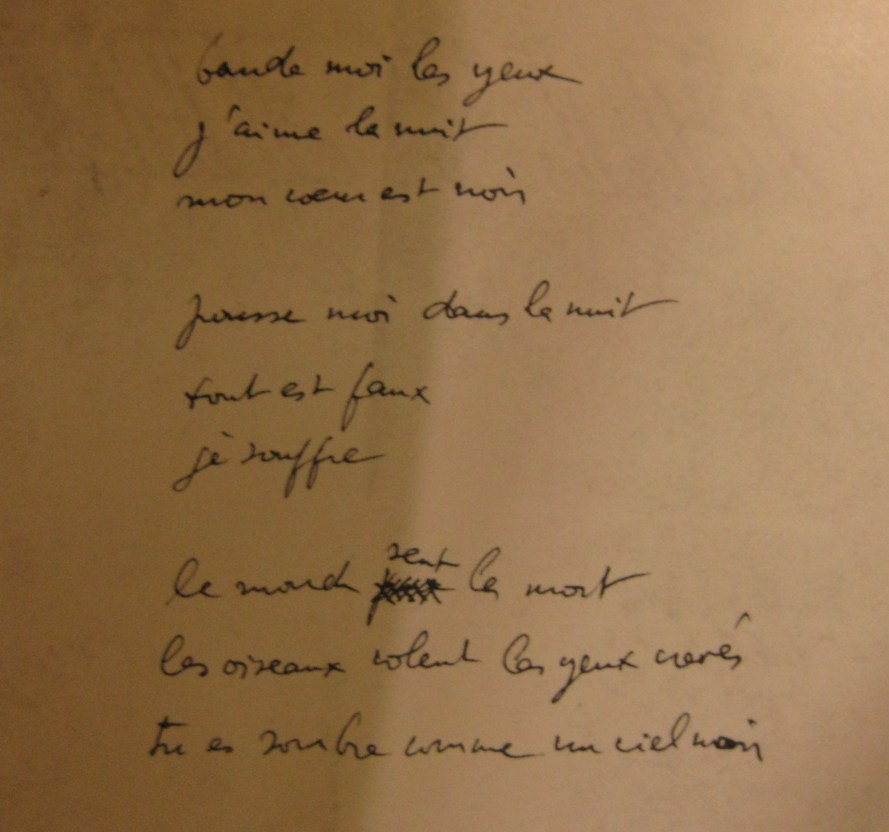 bande moi les yeux
j'aime la nuit
mon coeur est noir
pousse moi dans la nuit
tout est faux
je souffre
le monde sent la mort
les oiseaux volent les yeux crevés
tu es sombre comme un ciel noir